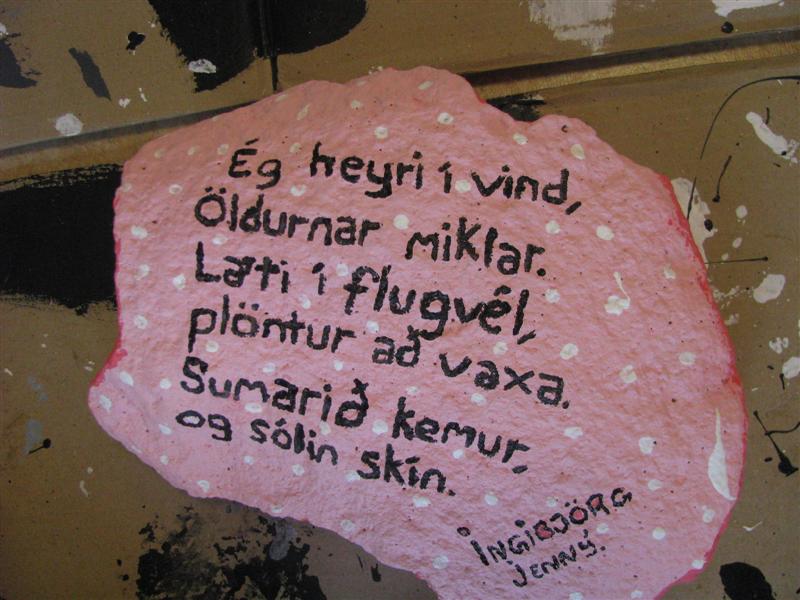 Ég heyri í vind,
Öldurnar miklar.
Læti í flugvél,
plöntur að vaxa.
Sumarið kemur,
og sólin skín.
INGIBJÖRG
JENNÝ.